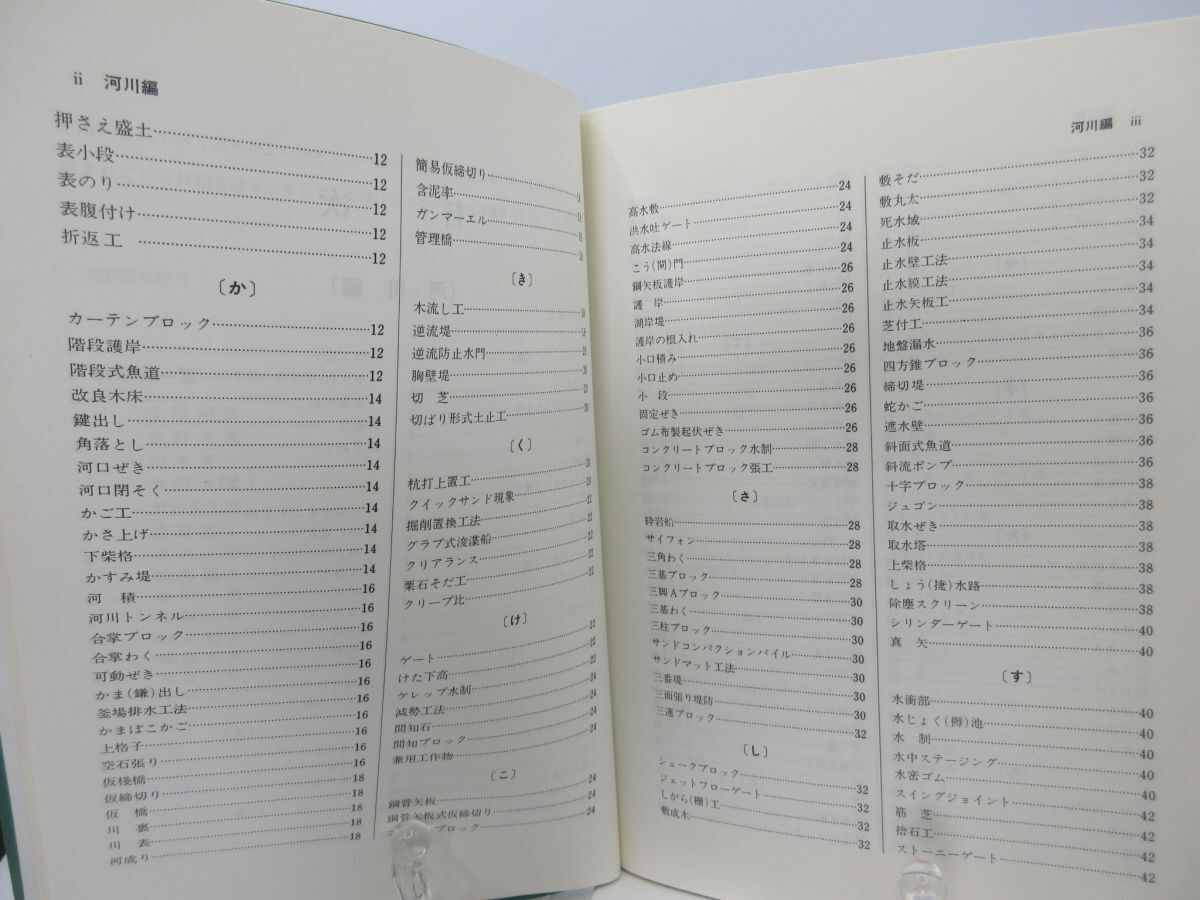 ii 河川編
押さえ盛土 12
表小段 12
表のり 12
表腹付け 12
折返工 12
〔か〕
カーテンブロック 12
階段護岸 12
階段式魚道 12
改良木床 14
鍵出し 14
角落とし 14
河口ぜき 14
河口閉そく 14
かご工 14
かさ上げ 14
下柴格 14
かすみ堤 14
河積 16
河川トンネル 16
合掌ブロック 16
合掌わく 16
可動ぜき 16
かま(鎌)出し 16
釜場排水工法 16
かまぼこかご 16
上格子 16
空石張り 16
仮桟橋 18
仮締切り 18
仮橋 18
川裏 18
川表 18
河成り
簡易仮締切り
含泥率
ガンマーエル
管理橋
〔き〕
木流し工
逆流堤
逆流防止水門
胸壁堤
切芝
切ばり形式土止工
〔く〕
杭打上置工
クイックサンド現象
掘削置換工法 22
グラブ式浚渫船 22
クリアランス 22
栗石そだ工 22
クリープ比 22
〔け〕
ゲート 22
けた下高 22
ケレップ水制 22
減勢工法 24
間知石 24
間知ブロック 24
兼用工作物 24
〔こ〕
鋼管矢板 24
鋼管矢板式仮締切り 24
ブロック 24
河川編 iii
高水敷 24
洪水吐ゲート 24
高水法線 24
こう(閘)門 24
鋼矢板護岸 26
護岸 26
湖岸堤 26
護岸の根入れ 26
小口積み 26
小口止め 26
小段 26
固定ぜき 26
ゴム布製起伏ぜき 26
コンクリートブロック水制 28
コンクリートブロック張工 28
〔さ〕
砕岩船 28
サイフォン 28
三角わく 28
三基ブロック 28
三脚Aブロック 30
三基わく 30
三柱ブロック 30
サンドコンパクションパイル 30
サンドマット工法 30
三番堤 30
三面張り堤防 30
三連ブロック 32
〔し〕
シェークブロック 32
ジェットフローゲート 32
しがら(柵)工 32
敷成木 32
敷そだ 32
敷丸太 32
死水域 32
止水板 34
止水壁工法 34
止水膜工法 34
止水矢板工 34
芝付工 34
地盤漏水 36
四方錐ブロック 36
締切堤 36
蛇かご 36
遮水壁 36
斜面式魚道 36
斜流ポンプ 36
十字ブロック 36
ジュゴン 38
取水ぜき 38
取水塔 38
上柴格 38
しょう(捷)水路 38
除塵スクリーン 38
シリンダーゲート 40
真矢 40
〔す〕
水衝部 40
水じょく(褥)池 40
水制 40
水中ステージング 40
水密ゴム 40
スイングジョイント 40
筋芝 42
捨石工 42
ストーニーゲート 42